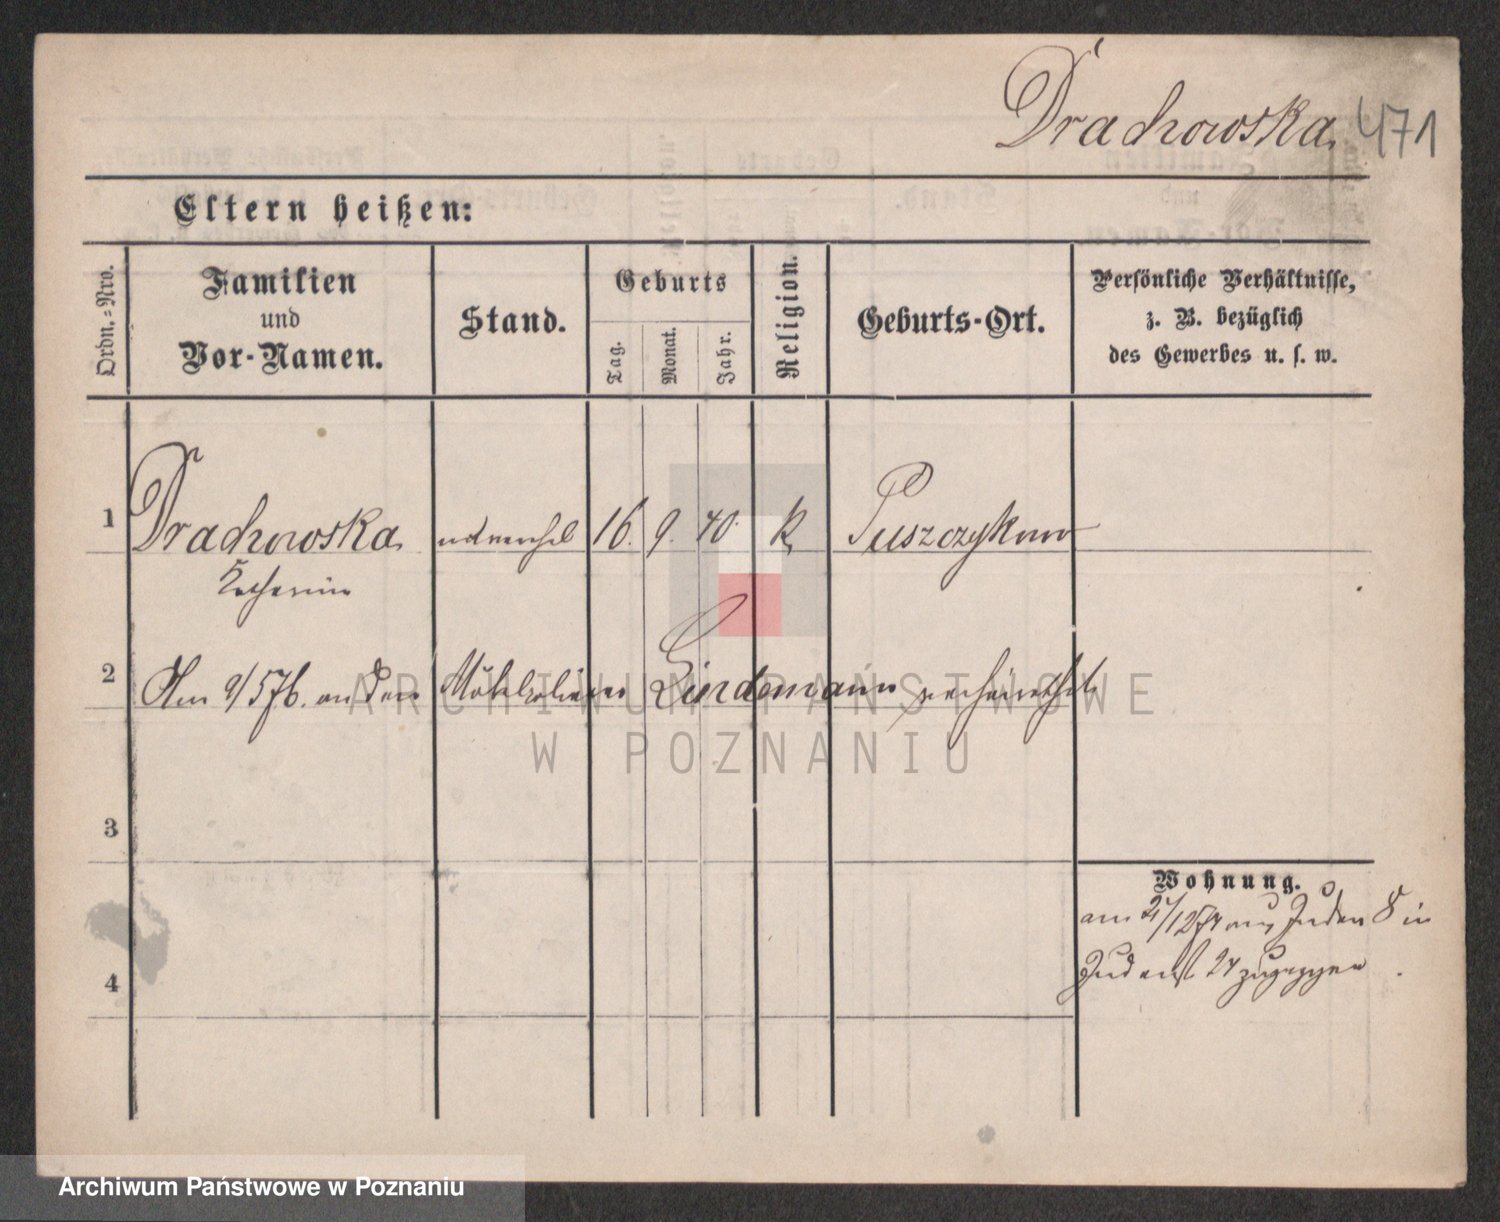 Drachowska
471
Eltern heißen:
Ordn.-Nro.
Familien
und
Vor-Namen.
Stand.
Geburts
Tag.
Monat.
Jahr.
Religion.
Geburts-Ort.
Persönliche Verhältnisse,
z. B. bezüglich
des Gewerbes u. s. w.
1 Drachowska unverehel 16. 9. 40. k. Puszczykowo
Katharina
2 Am 9/5 76. an den Lindemann verheirathet
3
Wohnung.
am Juden 8 in
4
Judenst 24 zugezogen
ARCHIWUM PAŃSTWOWE
W POZNANIU
Archiwum Państwowe w Poznaniu